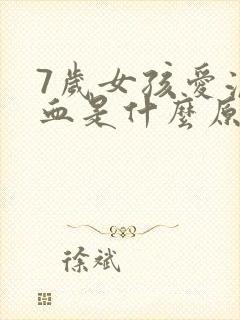 7歲女孩愛流
血是什麼原
徐斌